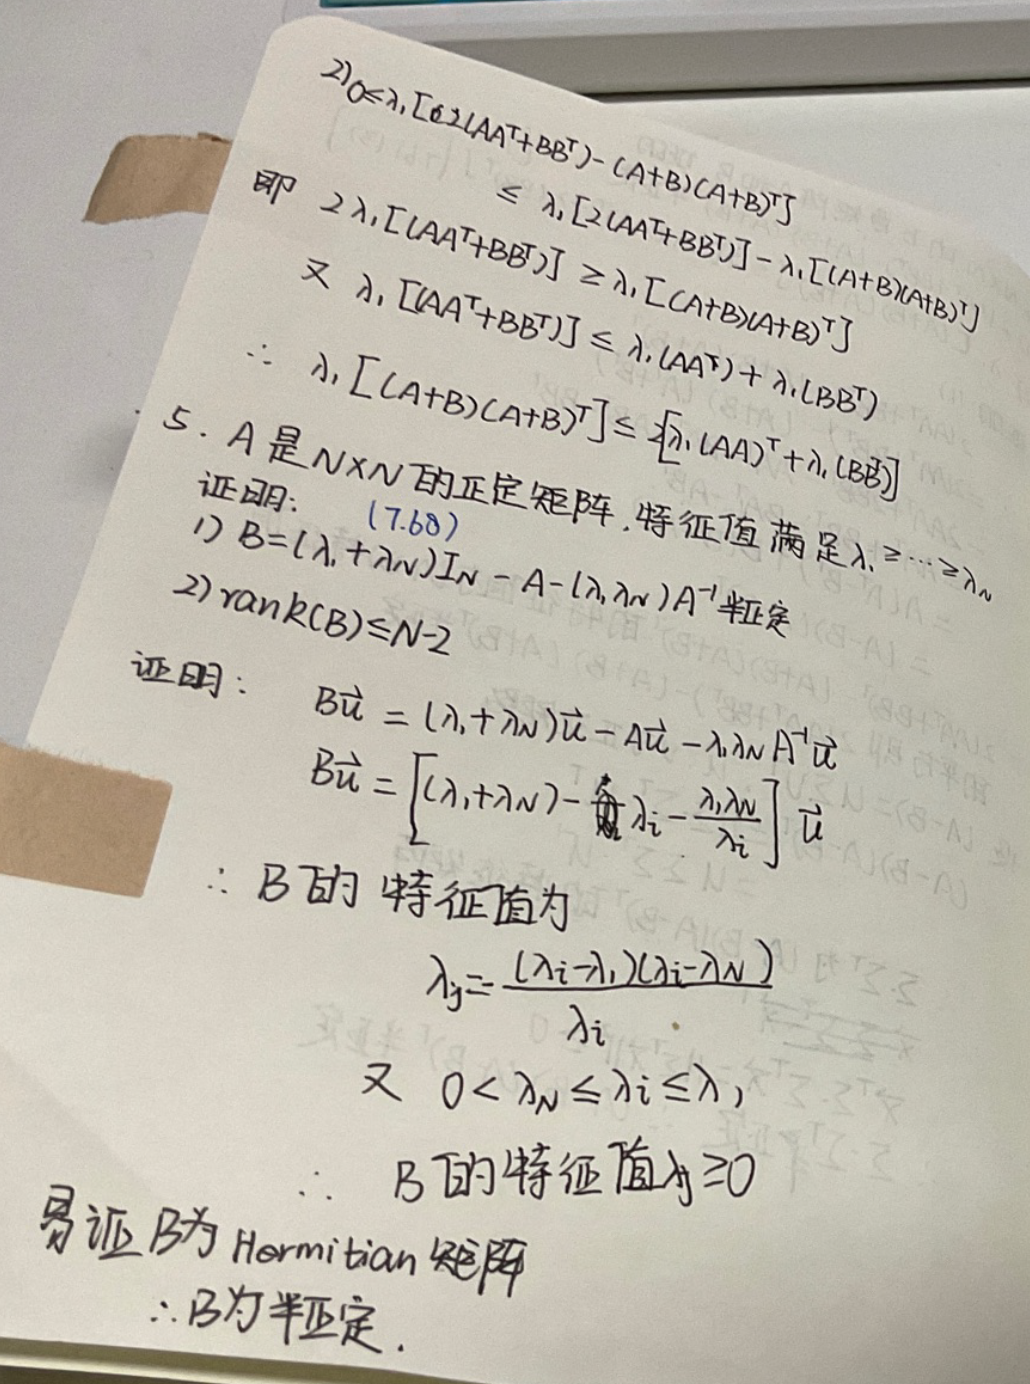 2) 0≤λ₁[2(AAᵀ+BBᵀ)-(A+B)(A+B)ᵀ]
≤ λ₁[2(AAᵀ+BBᵀ)]-λ₁[(A+B)(A+B)ᵀ]
即 2λ₁[(AAᵀ+BBᵀ)] ≥ λ₁[(A+B)(A+B)ᵀ]
又 λ₁[(AAᵀ+BBᵀ)] ≤ λ₁(AAᵀ)+λ₁(BBᵀ)
∴ λ₁[(A+B)(A+B)ᵀ] ≤ 2[λ₁(AA)ᵀ+λ₁(BBᵀ)]
5. A是N×N的正定矩阵,特征值满足λ₁≥⋯≥λN
证明: (7.68)
1) B=(λ₁+λN)IN-A-(λ₁λN)A⁻¹半正定
2) rank(B)≤N-2
证明: Bu⃗=(λ₁+λN)u⃗-Au⃗-λ₁λNA⁻¹u⃗
Bu⃗=[(λ₁+λN)-λi-λ₁λN/λi]u⃗
∴ B的特征值为
λj=-(λi-λ₁)(λi-λN)/λi
又 0<λN≤λi≤λ₁
∴ B的特征值λj≥0
易证B为Hermitian矩阵
∴B为半正定.